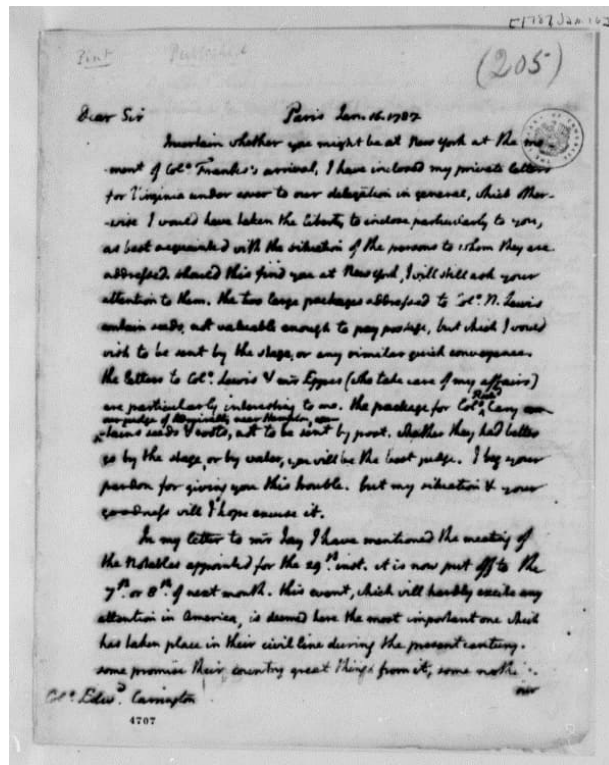 [1787 Jan 16]
Print
(205)
Dear Sir Paris Jan. 16. 1787
Uncertain whether you might be at New York at the mo-
-ment of Colo. Franks's arrival, I have inclosed my private letters
for Virginia under cover to our delegation in general, which other-
-wise I would have taken the liberty to inclose particularly to you,
as best acquainted with the situation of the persons to whom they are
addressed. should this find you at New York, I will still ask your
attention to them. the two large packages addressed to Colo. N. Lewis
contain seeds, not valuable enough to pay postage, but which I would
wish to be sent by the stage, or any similar quick conveyance.
the letters to Colo. Lewis & mr Eppes (who take care of my affairs)
are particularly interesting to me. the package for Colo. Richd. Cary
our judge of Admiralty near Hampton,
-tains seeds & roots, not to be sent by post. whether they had better
go by the stage, or by water, you will be the best judge. I beg your
pardon for giving you this trouble. but my situation & your
goodness will I hope excuse it.
In my letter to mr Jay I have mentioned the meeting of
the Notables appointed for the 29th. inst. it is now put off to the
7th. or 8th. of next month. this event, which will hardly excite any
attention in America, is deemed here the most important one which
has taken place in their civil line during the present century.
some promise their country great things from it, some nothing.
our
Colo. Edwd. Carrington
4707